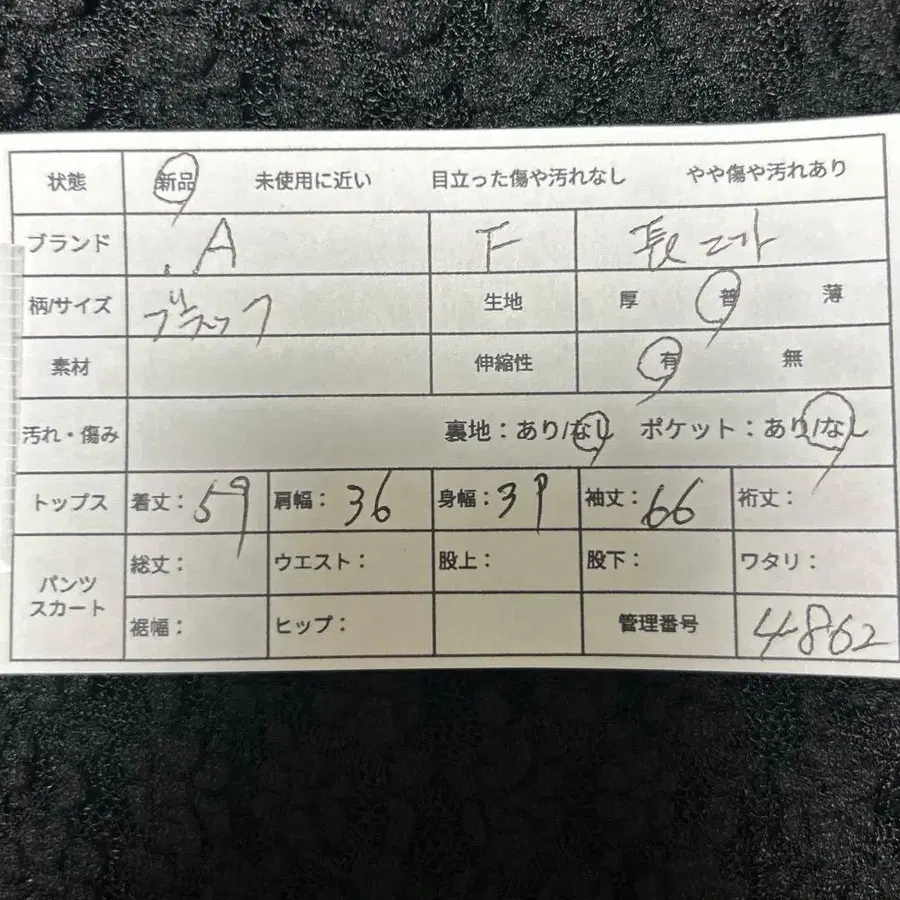 状態 新品 未使用に近い 目立った傷や汚れなし やや傷や汚れあり
ブランド .A F 長ニット
柄/サイズ ブラック 生地 厚 普 薄
素材 伸縮性 有 無
汚れ・傷み 裏地：あり/なし ポケット：あり/なし
トップス 着丈：59 肩幅：36 身幅：39 袖丈：66 裄丈：
パンツ スカート 総丈： ウエスト： 股上： 股下： ワタリ：
裾幅： ヒップ： 管理番号 4862